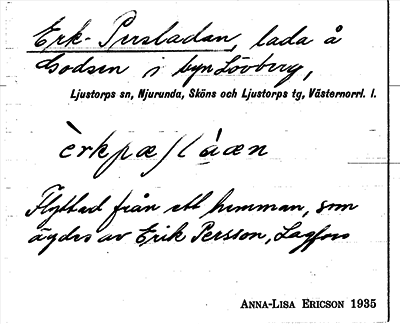 Erk-Persladan, lada å
Godsen i byn Lövberg,
Ljustorps sn, Njurunda, Sköns och Ljustorps tg, Västernorrl. l.
Flyttad från ett hemman, som
ägdes av Erik Persson, Lagfors
ANNA-LISA ERICSON 1935